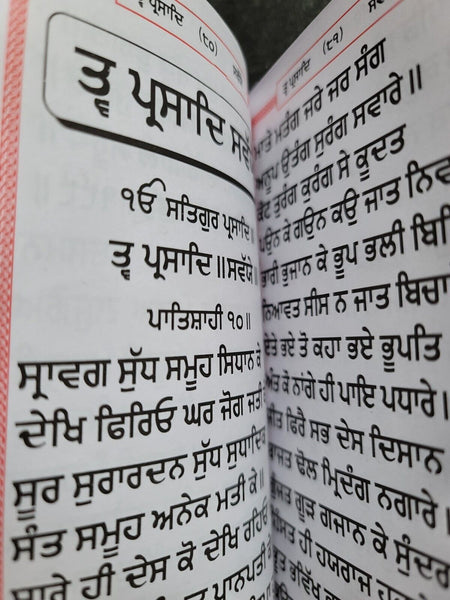 ਤ੍ਵ ਪ੍ਰਸਾਦਿ (੮੦)
ਤ੍ਵ ਪ੍ਰਸਾਦਿ
ੴ ਸਤਿਗੁਰ ਪ੍ਰਸਾਦਿ॥
ਤ੍ਵ ਪ੍ਰਸਾਦਿ॥ਸਵੱਯੇ
ਪਾਤਿਸ਼ਾਹੀ ੧੦॥
ਸ੍ਰਾਵਗ ਸੁੱਧ ਸਮੂਹ ਸਿਧਾਨ ਕੇ
ਦੇਖਿ ਫਿਰਿਓ ਘਰ ਜੋਗ ਜਤੀ
ਸੂਰ ਸੁਰਾਰਦਨ ਸੁੱਧ ਸੁਧਾਦਿਕ
ਸੰਤ ਸਮੂਹ ਅਨੇਕ ਮਤੀ ਕੇ॥
ਸਾਰੇ ਹੀ ਦੇਸ ਕੋ ਦੇਖਿ ਰਹਿਓ
ਪ੍ਰਾਨਪਤੀ ਕੇ
ਤ੍ਵ ਪ੍ਰਸਾਦਿ (੮੧)
ਮਾਤੇ ਮਤੰਗ ਜਰੇ ਜਰ ਸੰਗ
ਅਨੂਪ ਉਤੰਗ ਸੁਰੰਗ ਸਵਾਰੇ॥
ਕੋਟ ਤੁਰੰਗ ਕੁਰੰਗ ਸੇ ਕੂਦਤ
ਪਉਨ ਕੇ ਗਉਨ ਕਉ ਜਾਤ
ਭਾਰੀ ਭੁਜਾਨ ਕੇ ਭੂਪ ਭਲੀ
ਨਿਆਵਤ ਸੀਸ ਨ ਜਾਤ
ਏਤੇ ਭਏ ਤੋ ਕਹਾ ਭਏ ਭੂਪਤਿ
ਅੰਤ ਕੋ ਨਾਂਗੇ ਹੀ ਪਾਇ ਪਧਾਰੇ॥
ਜੀਤ ਫਿਰੈ ਸਭ ਦੇਸ ਦਿਸਾਨ
ਬਾਜਤ ਢੋਲ ਮ੍ਰਿਦੰਗ ਨਗਾਰੇ॥
ਗੁੰਜਤ ਗੂੜ ਗਜਾਨ ਕੇ ਸੁੰਦਰ
ਹੀ ਹਯਰਾਜ